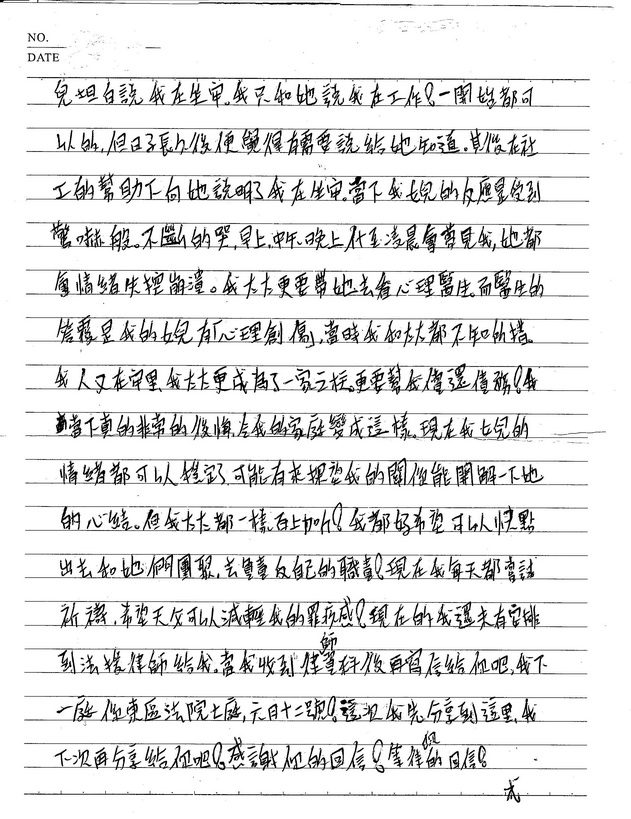 NO.
DATE
兒坦白說我在坐牢。我只和她說我在工作！一開始都可
以的，但日子長久後便覺得有需要說給她知道。其後在社
工的幫助下向她說明了我在坐牢。當下我女兒的反應是受到
驚嚇般。不斷的哭，早上，中午，晚上，什至凌晨會夢見我，她都
會情緒失控崩潰。我太太更要帶她去看心理醫生。而醫生的
答覆是我的女兒有「心理創傷」，當時我和太太都不知所措。
我人又在牢裏，我太太更成為了一家之柱。更要幫我償還債務！我
當下真的非常的後悔，令我的家庭變成這樣。現在我女兒的
情緒都可以穩定了，可能有來探望我的關係能開解一下她
的心結。但我太太都一樣百上加斤！我都好希望可以人快點
出去和她們團聚，去重董反自己的職責！現在我每天都嘗試
祈禱，希望天父可以減輕我的罪疚感！現在的我還未有安排
到法援律師給我。當我收到律師資料後再寫信給你吧，我下
一庭係東區法院上庭，六日十二號！這次我先分享到這里，我
下次再分享給你吧！感謝你的回信！等待你的回信！
式